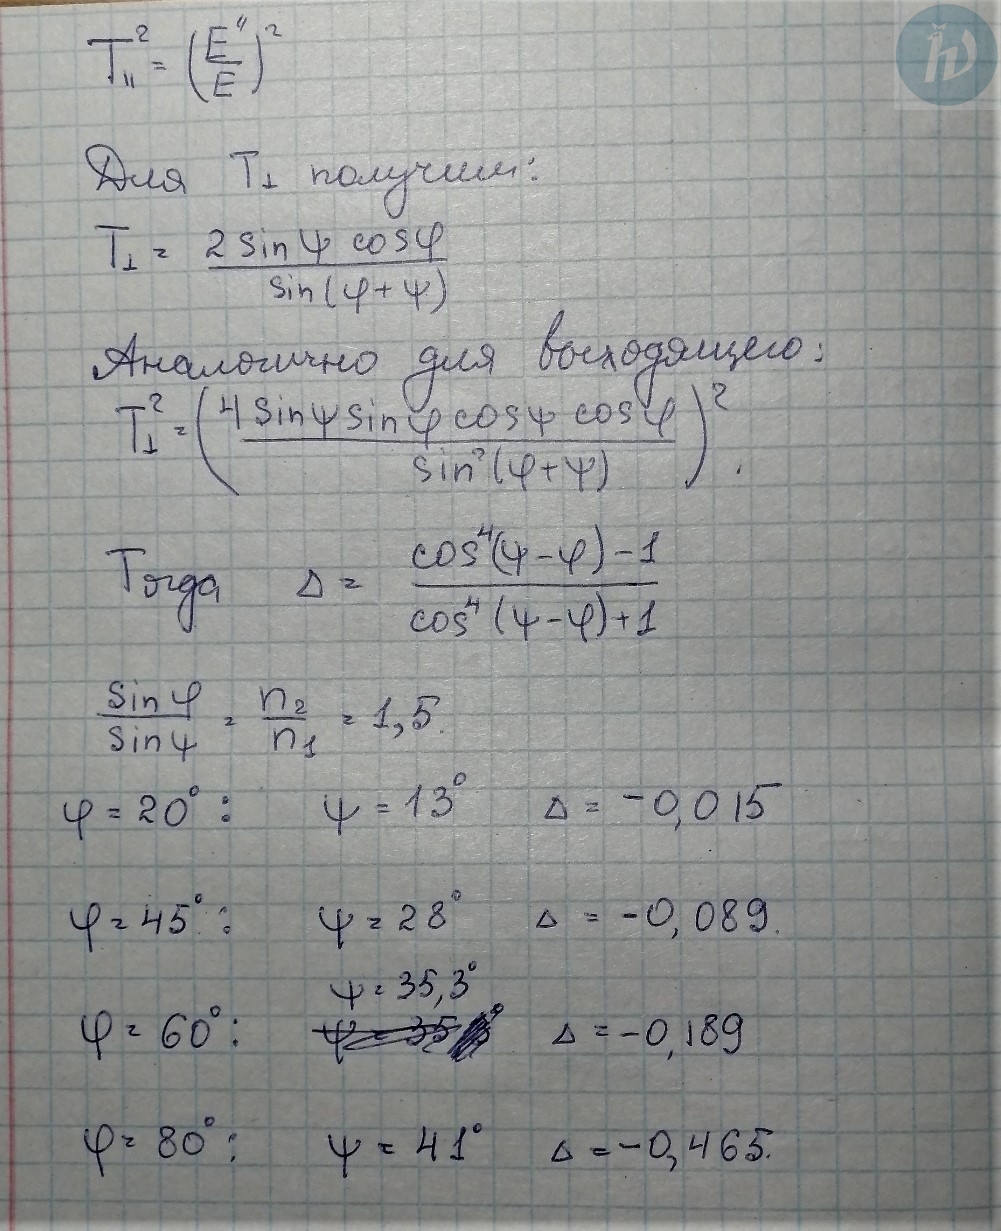 T∥² = (E"/E)²
Для T⊥ получим:
T⊥ = 2 sin ψ cos φ / sin(φ + ψ)
Аналогично для выходящего:
T⊥² = (4 sin ψ sin φ cos ψ cos φ / sin²(φ + ψ))².
Тогда Δ = cos⁴(ψ - φ) - 1 / cos⁴(ψ - φ) + 1
sin φ / sin ψ = n₂ / n₁ = 1,5.
φ = 20° : ψ = 13° Δ = -0,015
φ = 45° : ψ = 28° Δ = -0,089.
ψ = 35,3°
φ = 60° : Δ = -0,189
φ = 80° : ψ = 41° Δ = -0,465.